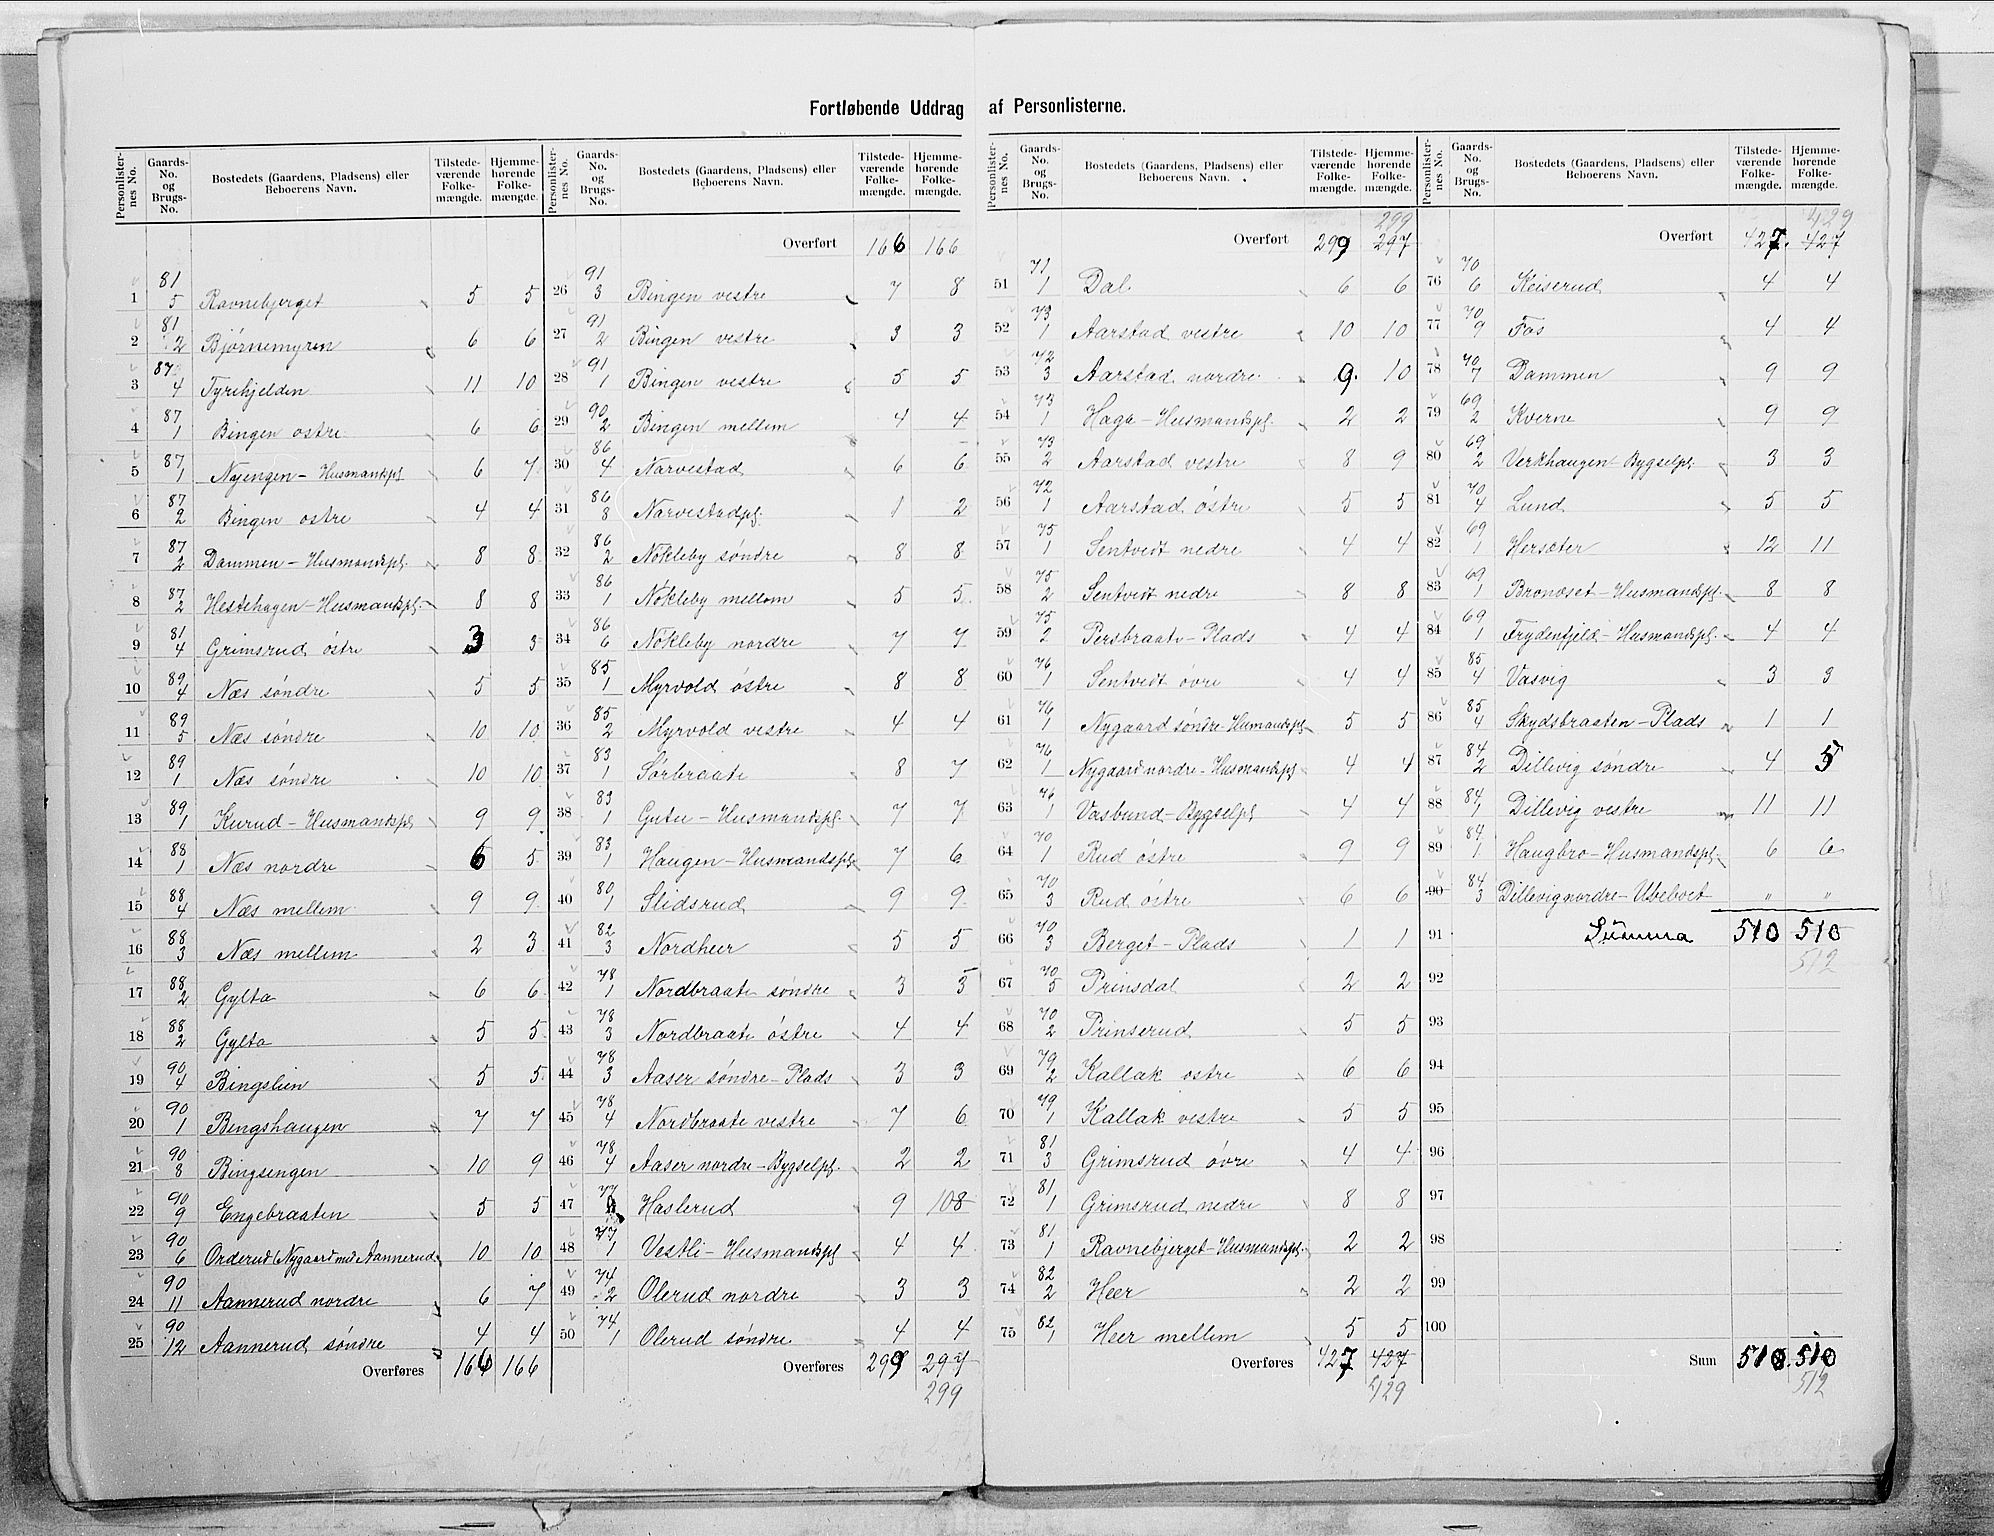 Fortløbende Uddrag af Personlisterne.
Personlisternes No. | Gaards-No. og Brugs-No. | Bostedets (Gaardens, Pladsens) eller Beboerens Navn. | Tilstedeværende Folkemængde. | Hjemmehørende Folkemængde.
1 | 81 5 | Ravnebjerget | 5 | 5
2 | 81 2 | Bjørnemyren | 6 | 6
3 | 87 4 | Tyrihjelden | 11 | 10
4 | 87 1 | Bingen østre | 6 | 6
5 | 87 1 | Nyengen - Husmandspl. | 6 | 7
6 | 87 2 | Bingen østre | 4 | 4
7 | 87 2 | Dammen - Husmandspl. | 8 | 8
8 | 87 2 | Hestehagen - Husmandspl. | 8 | 8
9 | 81 4 | Grimsrud østre | 3 | 3
10 | 89 4 | Næs søndre | 5 | 5
11 | 89 5 | Næs søndre | 10 | 10
12 | 89 1 | Næs søndre | 10 | 10
13 | 89 1 | Kurud - Husmandspl. | 9 | 9
14 | 88 1 | Næs nordre | 6 | 5
15 | 88 4 | Næs mellem | 9 | 9
16 | 88 3 | Næs mellem | 2 | 3
17 | 88 2 | Gylta | 6 | 6
18 | 88 2 | Gylta | 5 | 5
19 | 90 4 | Bingslien | 5 | 5
20 | 90 1 | Bingshaugen | 7 | 7
21 | 90 8 | Bingsengen | 10 | 9
22 | 90 9 | Engebraaten | 5 | 5
23 | 90 6 | Orderud (Nygaard med Aannerud | 10 | 10
24 | 90 11 | Aannerud nordre | 6 | 7
25 | 90 12 | Aannerud søndre | 4 | 4
Overføres | 166 | 166
Personlisternes No. | Gaards-No. og Brugs-No. | Bostedets (Gaardens, Pladsens) eller Beboerens Navn. | Tilstedeværende Folkemængde. | Hjemmehørende Folkemængde.
Overført | 166 | 166
26 | 91 3 | Bingen vestre | 7 | 8
27 | 91 2 | Bingen vestre | 3 | 3
28 | 91 1 | Bingen vestre | 5 | 5
29 | 90 2 | Bingen mellem | 4 | 4
30 | 86 4 | Narvestad | 6 | 6
31 | 86 8 | Narvestadpl. | 1 | 2
32 | 86 2 | Nökleby søndre | 8 | 8
33 | 86 1 | Nökleby mellom | 5 | 5
34 | 86 6 | Nökleby nordre | 7 | 7
35 | 85 1 | Myrvold östre | 8 | 8
36 | 85 2 | Myrvold vestre | 4 | 4
37 | 83 1 | Sörbraate | 8 | 7
38 | 83 1 | Gutu - Husmandspl. | 7 | 7
39 | 83 1 | Haugen - Husmandspl. | 7 | 6
40 | 80 1 | Slidsrud | 9 | 9
41 | 82 3 | Nordheer | 5 | 5
42 | 78 1 | Nordbraate søndre | 3 | 3
43 | 78 3 | Nordbraate östre | 4 | 4
44 | 78 3 | Aaser søndre - Plads | 3 | 3
45 | 78 4 | Nordbraate vestre | 7 | 6
46 | 78 4 | Aaser nordre - Bygselpl. | 2 | 2
47 | 77 | Haslerud | 9 | 108
48 | 77 1 | Vestli - Husmandspl | 4 | 4
49 | 74 2 | Olerud nordre | 3 | 3
50 | 74 1 | Olerud søndre | 4 | 4
Overføres | 299 | 297
299
Personlisternes No. | Gaards-No. og Brugs-No. | Bostedets (Gaardens, Pladsens) eller Beboerens Navn. | Tilstedeværende Folkemængde. | Hjemmehørende Folkemængde.
299
Overført | 299 | 297
51 | 71 1 | Dal | 6 | 6
52 | 73 1 | Aarstad vestre | 10 | 10
53 | 72 3 | Aarstad nordre | 9 | 10
54 | 73 1 | Haga - Husmandspl. | 2 | 2
55 | 73 2 | Aarstad vestre | 8 | 9
56 | 72 1 | Aarstad östre | 5 | 5
57 | 75 1 | Sentvedt nedre | 4 | 4
58 | 75 2 | Sentvedt nedre | 8 | 8
59 | 75 2 | Persbraate - Plads | 4 | 4
60 | 76 1 | Sentvedt övre | 4 | 4
61 | 76 1 | Nygaard søndre - Husmandspl. | 5 | 5
62 | 76 1 | Nygaard nordre - Husmandspl. | 4 | 4
63 | 76 1 | Vasbund - Bygselpl | 4 | 4
64 | 70 1 | Rud östre | 9 | 9
65 | 70 3 | Rud östre | 6 | 6
66 | 70 3 | Berget - Plads | 1 | 1
67 | 70 5 | Prinsdal | 2 | 2
68 | 70 2 | Prinserud | 5 | 5
69 | 79 2 | Kallak östre | 6 | 6
70 | 79 1 | Kallak vestre | 5 | 5
71 | 81 3 | Grimsrud övre | 4 | 4
72 | 81 1 | Grimsrud nedre | 8 | 8
73 | 81 1 | Ravnebjerget - Husmandspl. | 2 | 2
74 | 82 2 | Heer | 2 | 2
75 | 82 1 | Heer mellem | 5 | 5
Overføres | 427 | 427
429
Personlisternes No. | Gaards-No. og Brugs-No. | Bostedets (Gaardens, Pladsens) eller Beboerens Navn. | Tilstedeværende Folkemængde. | Hjemmehørende Folkemængde.
429
Overført | 427. | 427
76 | 70 6 | Keiserud | 4 | 4
77 | 70 9 | Fos | 4 | 4
78 | 70 7 | Dammen | 9 | 9
79 | 69 2 | Kverne | 9 | 9
80 | 69 2 | Verkhaugen - Bygselpl. | 3 | 3
81 | 70 4 | Lund | 5 | 5
82 | 69 1 | Hersæter | 12 | 11
83 | 69 1 | Bronæset - Husmandspl. | 8 | 8
84 | 69 1 | Frydenfjeld - Husmandspl. | 4 | 4
85 | 85 4 | Vasvig | 3 | 3
86 | 85 4 | Skydsbraaten - Plads | 1 | 1
87 | 84 2 | Dillevig søndre | 4 | 5
88 | 84 1 | Dillevig vestre | 11 | 11
89 | 84 1 | Haugbro - Husmandspl. | 6 | 6
90 | 84 3 | Dillevig nordre - Ubeboet | " | "
91 | Summa | 510 | 510
512
92
93
94
95
96
97
98
99
100
Sum | 510. | 510
512